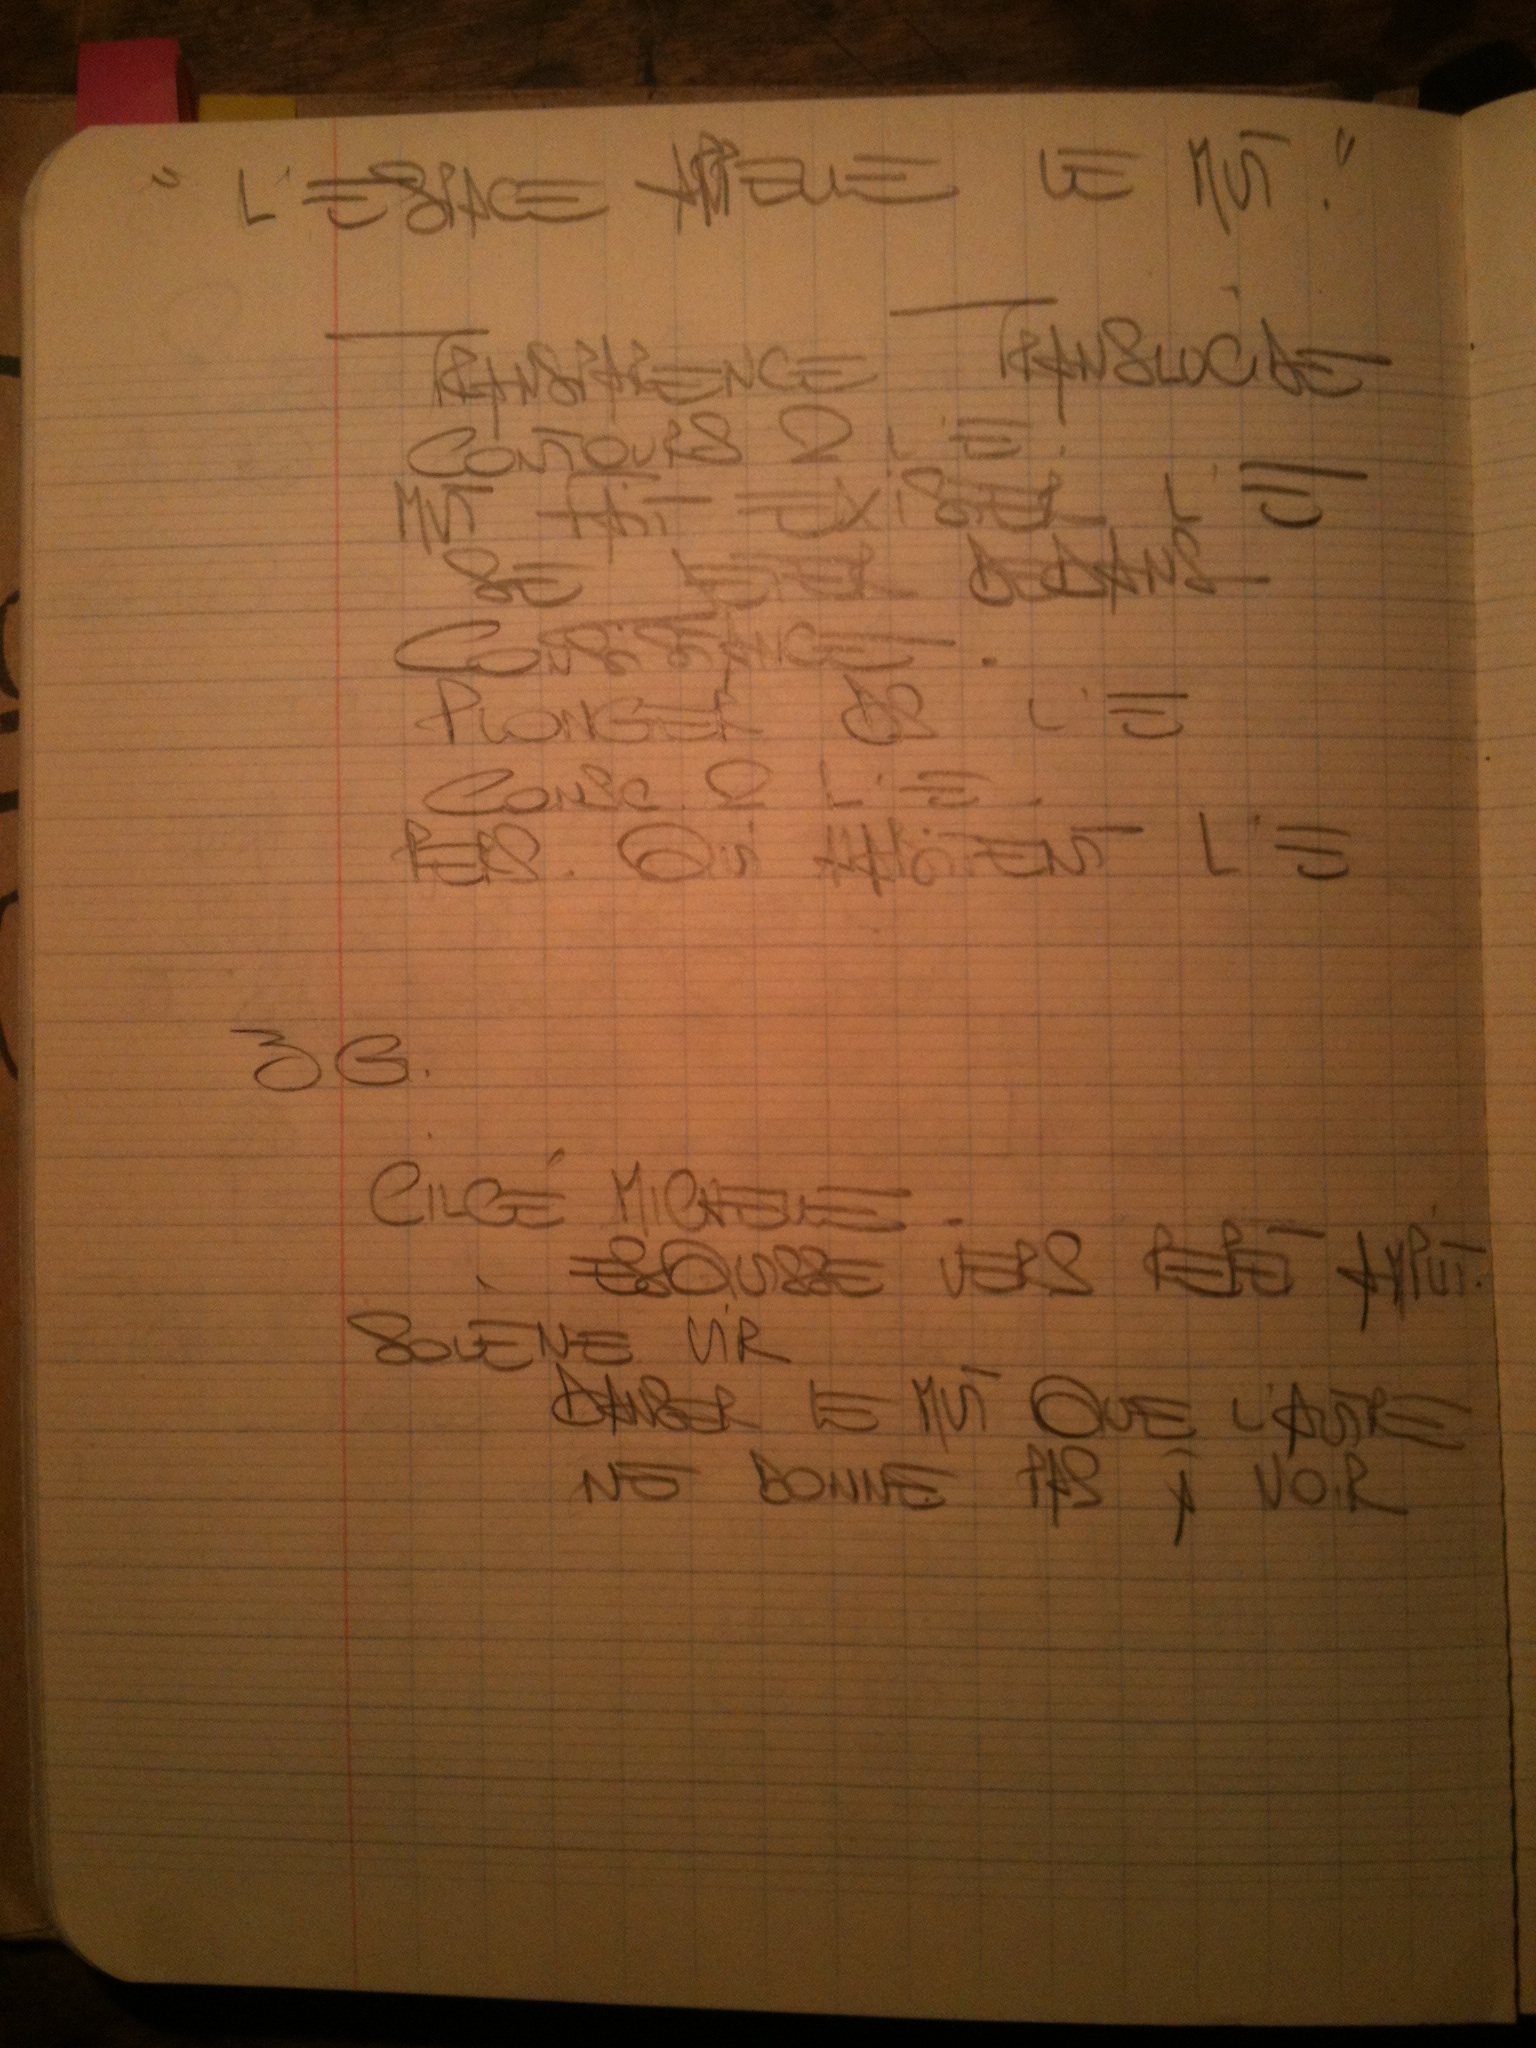 "L'ESPACE APPELLE LE MVT."
TRANSPARENCE TRANSLUCIDE
CONTOURS 2 L'E.
MVT FAIT EXISTER L'E
SE JETER DEDANS
CONSISTANCE.
PLONGER DS L'E
CONSC. 2 L'E.
PERS. QUI HABITENT L'E
3G.
MICHELLE.
ESQUISSE VERS PEPE AMPUT.
SOLÈNE VIR
DANSER LE MVT QUE L'AUTRE
NE DONNE PAS À VOIR